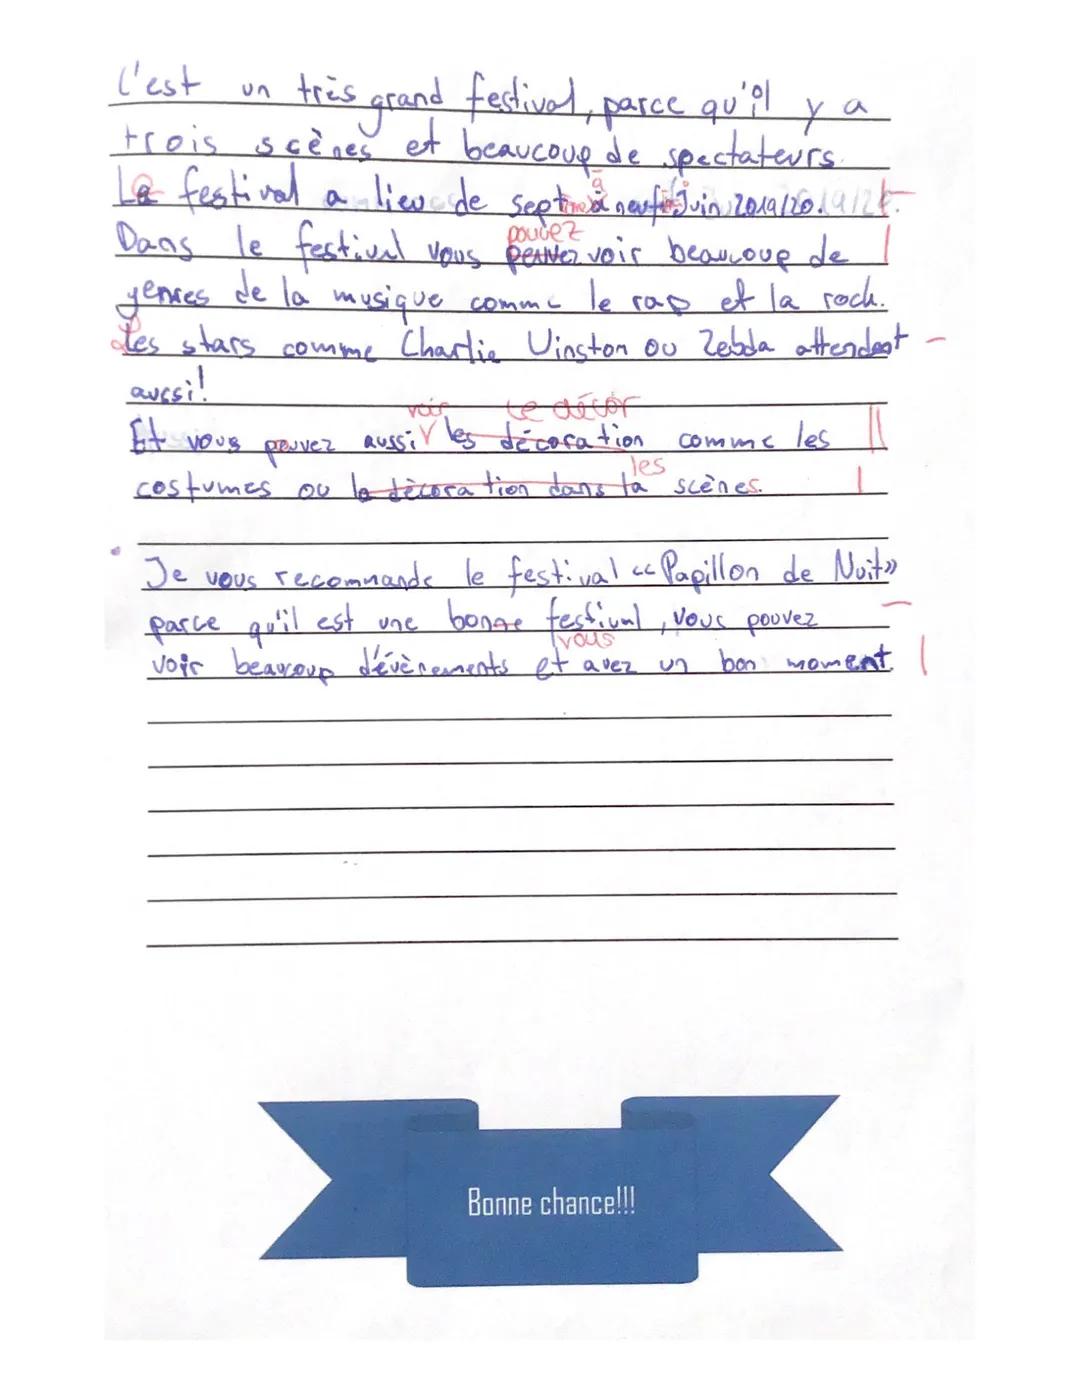 C'est un très grand festival, parce qu'il y a
trois scènes et beaucoup de spectateurs.
Le festival a lieu de sept à neuf Juin 2019/20.
pouvez
Dans le festival vous peuvez voir beaucoup de
genres de la musique comme le rap et la rock.
Les stars comme Charlie Uinston ou Zebda attendent
aussi!
voir le décor
Et vous pouvez aussi les décoration comme les
les
costumes ou la dècoration dans la scènes.
Je vous recommande le festival «Papillon de Nuit»
parce qu'il est une bonne festival, vous pouvez
vous
voir beaucoup d'évènements et avez un bon moment
Bonne chance!!!